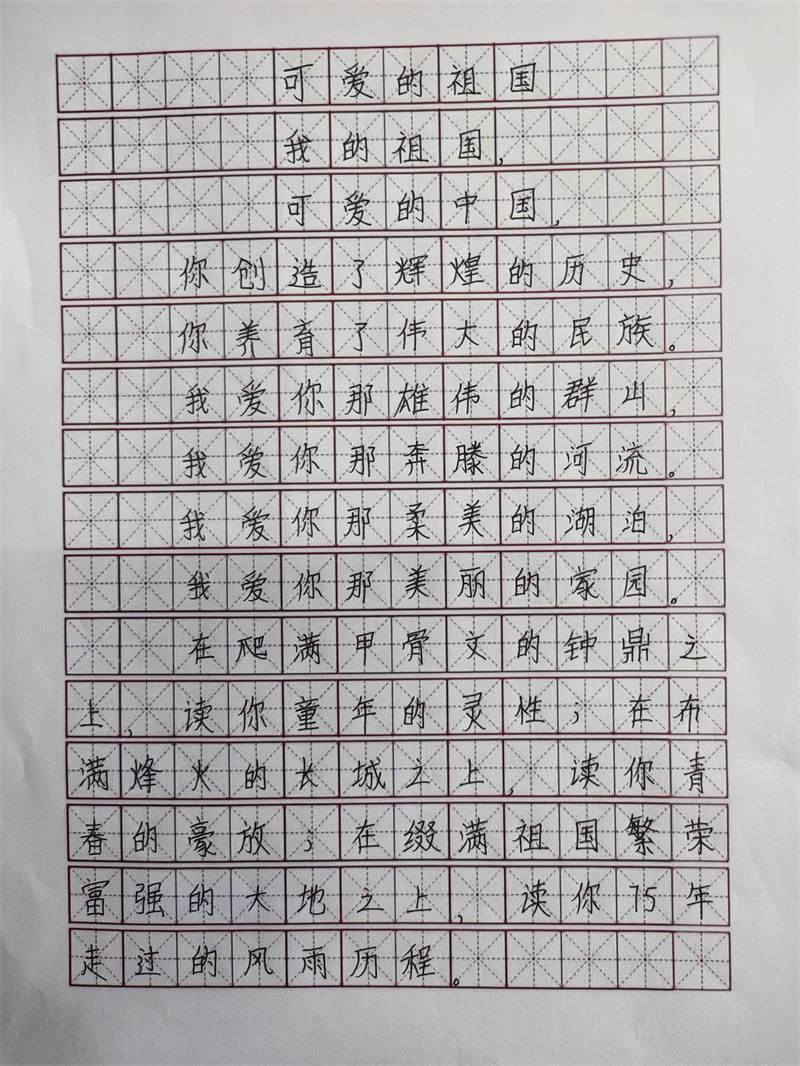 可爱的祖国
我的祖国,
可爱的中国,
你创造了辉煌的历史,
你养育了伟大的民族。
我爱你那雄伟的群山,
我爱你那奔腾的河流。
我爱你那柔美的湖泊,
我爱你那美丽的家园。
在爬满甲骨文的钟鼎之
上,读你童年的灵性;在布
满烽火的长城之上,读你青
春的豪放;在缀满祖国繁荣
富强的大地之上,读你75年
走过的风雨历程。